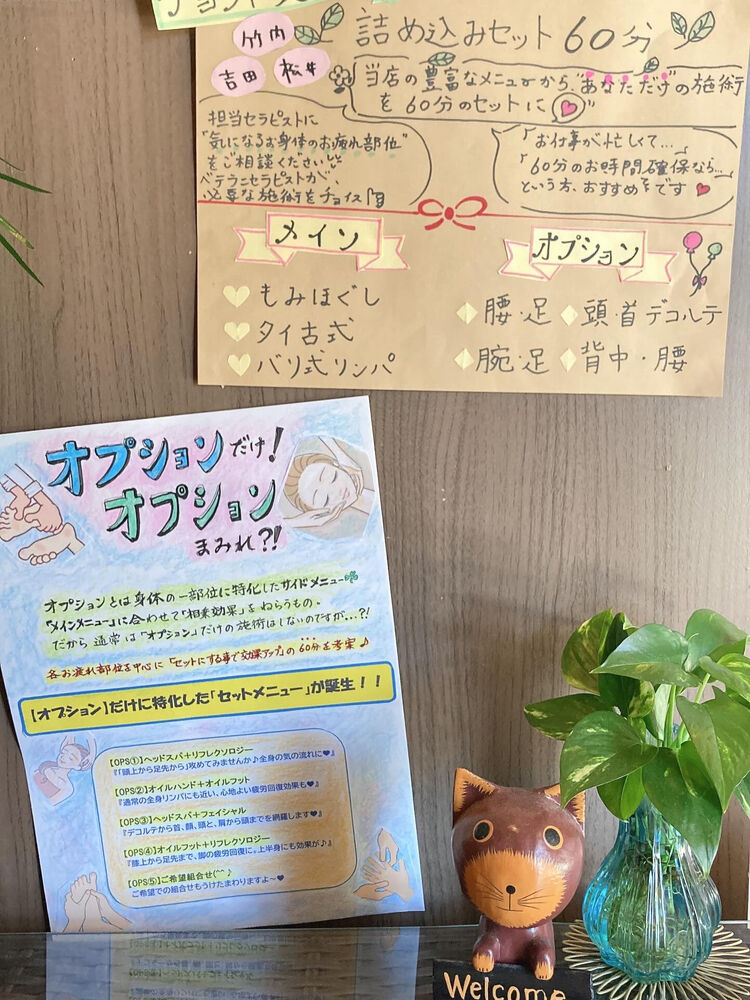 竹内
吉田 松井
詰め込みセット 60分
当店の豊富なメニューから、"あなただけ"の施術
を 60分のセットに"
担当セラピストに
"気になるお身体のお疲れ部位"
をご相談ください
ベテランセラピストが、
必要な施術をチョイス
「お仕事が忙しくて…」
「60分のお時間確保なら…」
という方、おすすめです♥
メイン
オプション
もみほぐし
タイ古式
バリ式リンパ
腰・足 頭・首デコルテ
腕・足 背中・腰
オプションだけ!
オプション
まみれ?!
オプションとは身体の一部位に特化したサイドメニュー
「メインメニュー」に合わせて「相乗効果」をねらうもの。
だから通常は「オプション」だけの施術はしないのですが…?!
各お疲れ部位を中心に「セットにする事で効果アップ」の60分を考案♪
【オプション】だけに特化した「セットメニュー」が誕生!!
【OPS①】ヘッドスパ+リフレクソロジー
『「頭上から足先から」攻めてみませんか♪全身の気の流れに♥』
【OPS②】オイルハンド+オイルフット
『通常の全身リンパにも近い、心地よい疲労回復効果も♥』
【OPS③】ヘッドスパ+フェイシャル
『デコルテから首、顔、頭と、肩から頭までを網羅します♥』
【OPS④】オイルフット+リフレクソロジー
『膝上から足先まで、脚の疲労回復に。上半身にも効果が♪』
【OPS⑤】ご希望組合せ(^^♪
ご希望での組合せもうけたまわりますよ~♥
Welcome